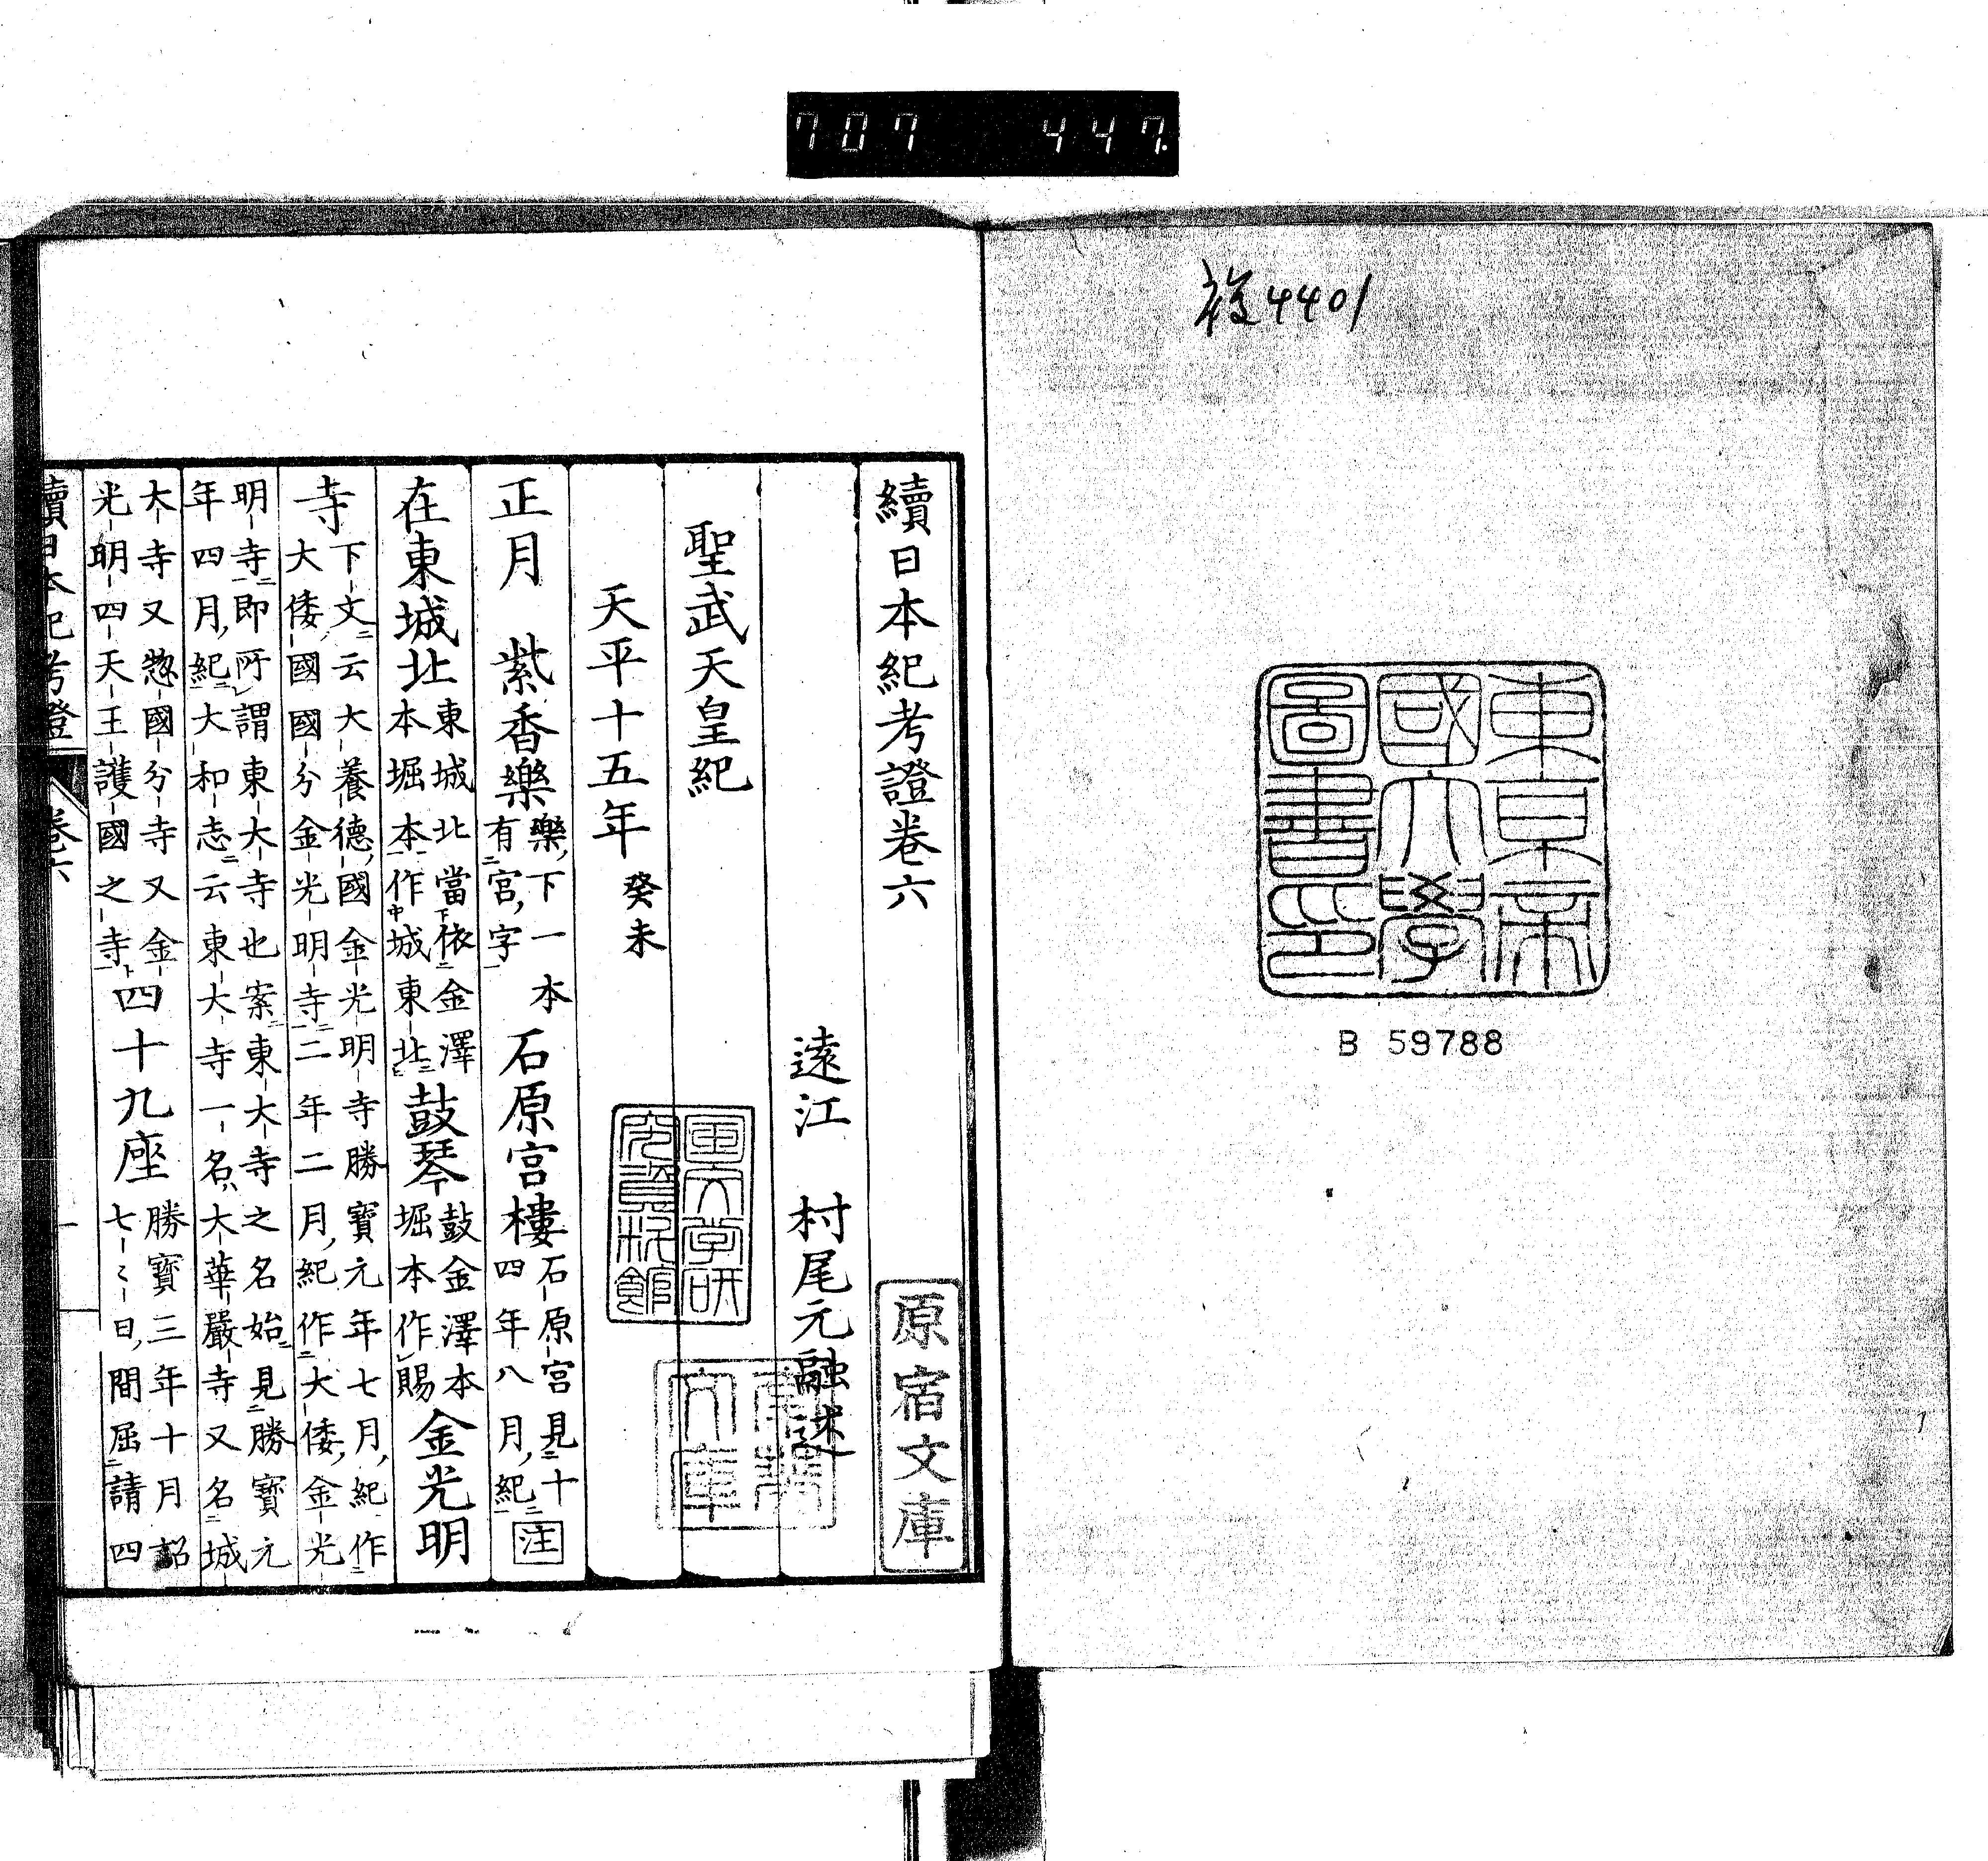 707 447.
複4401
東京帝
國大學
圖書印
B 59788
續日本紀考證卷六
原宿文庫
遠江 村尾元融述
聖武天皇紀
天平十五年 癸未
國文学研
究資料館
文庫
正月 紫香樂 樂下一本
有宮字
石原宮樓 石原宮見十
四年八月紀
注
在東城北 東城北當依金澤
本堀本作城東北
鼓琴 鼓金澤本
堀本作賜
金光明
寺 下文云大養德國金光明寺勝寶元年七月紀作
大倭國國分金光明寺二年二月紀作大倭金光
明寺即所謂東大寺也案東大寺之名始見勝寶元
年四月紀大和志云東大寺一名大華嚴寺又名城
大寺又惣國分寺又金
光明四天王護國之寺
四十九座 勝寶三年十月詔
七〻日間屈請四
續日本紀考證 卷六 一